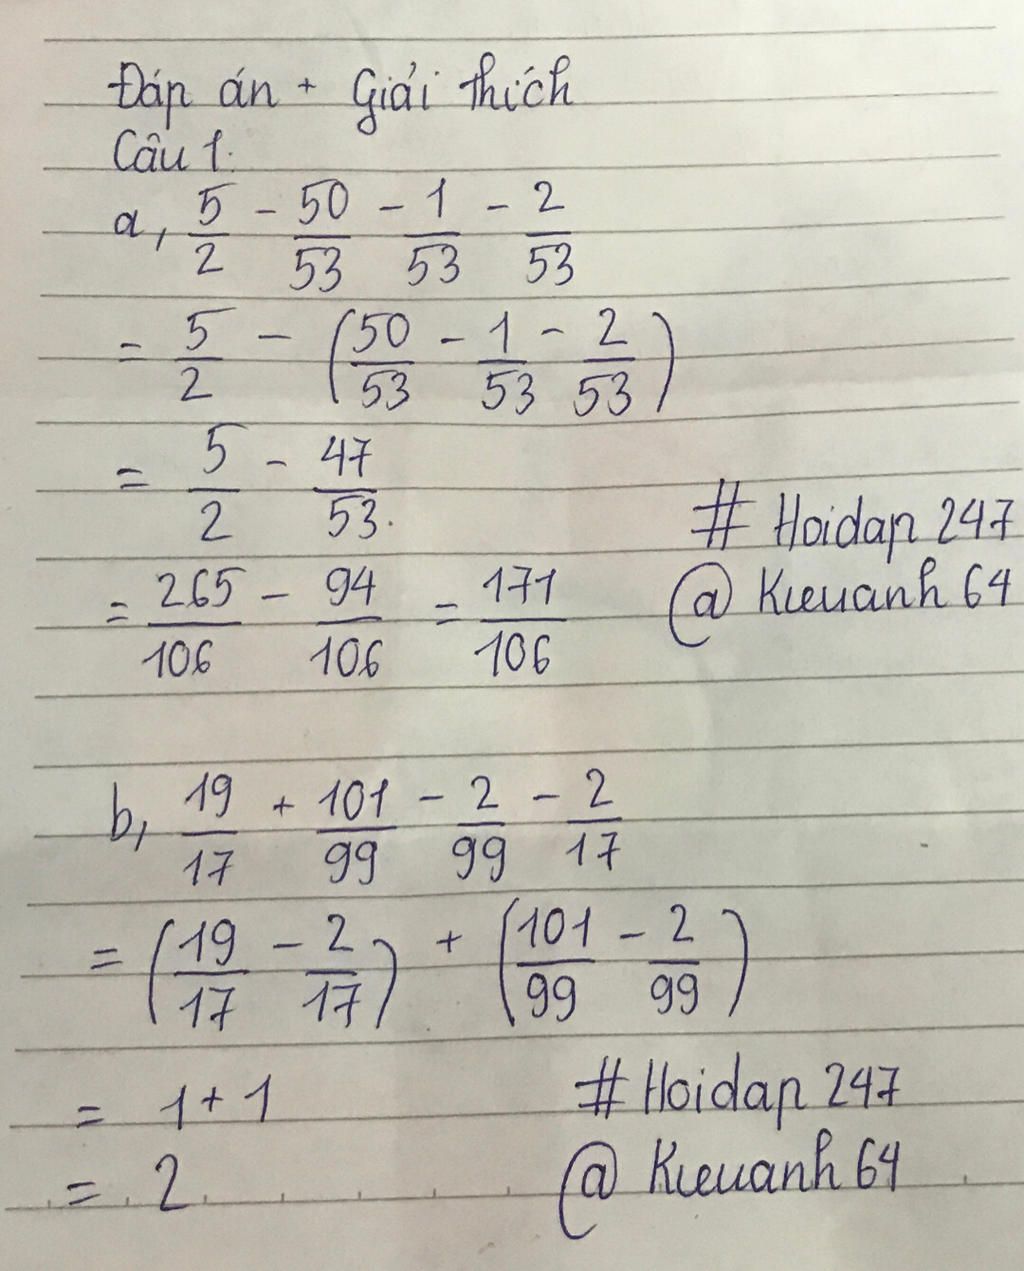 Đáp án + Giải thích
Câu 1:
a, 5/2 - 50/53 - 1/53 - 2/53
= 5/2 - (50/53 - 1/53 - 2/53)
= 5/2 - 47/53.
= 265/106 - 94/106 = 171/106
# Hoidap 247
@ Kieuanh 64
b, 19/17 + 101/99 - 2/99 - 2/17
= (19/17 - 2/17) + (101/99 - 2/99)
= 1 + 1
= 2
# Hoidap 247
@ Kieuanh 64